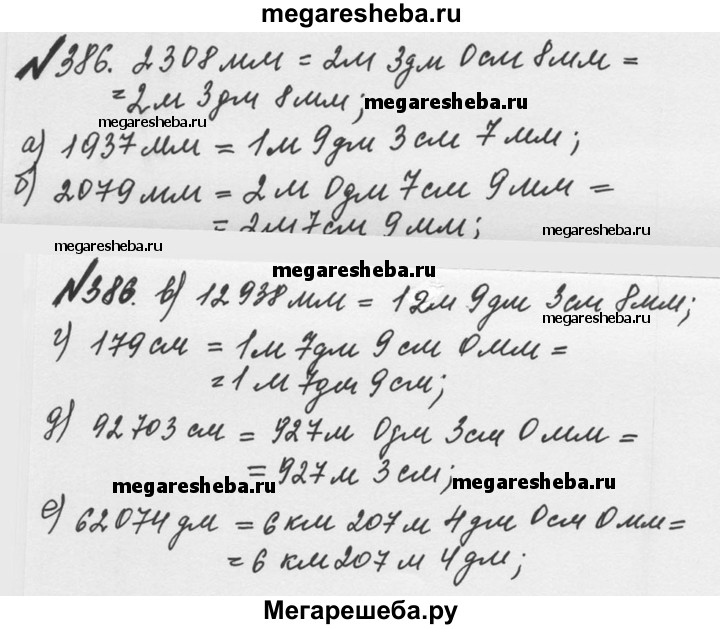 megaresheba.ru
№386. 2308мм = 2м 3дм 0см 8мм =
= 2м 3дм 8мм; megaresheba.ru
megaresheba.ru
а) 1937мм = 1м 9дм 3см 7мм;
б) 2079мм = 2м 0дм 7см 9мм =
= 2м 7см 9мм; megaresheba.ru
megaresheba.ru
megaresheba.ru
№386. в) 12938мм = 12м 9дм 3см 8мм;
megaresheba.ru
г) 179см = 1м 7дм 9см 0мм =
= 1м 7дм 9см;
д) 92703см = 927м 0дм 3см 0мм =
= 927м 3см;
megaresheba.ru megaresheba.ru
е) 62074дм = 6км 207м 4дм 0см 0мм =
= 6км 207м 4дм;
Мегарешеба.ру